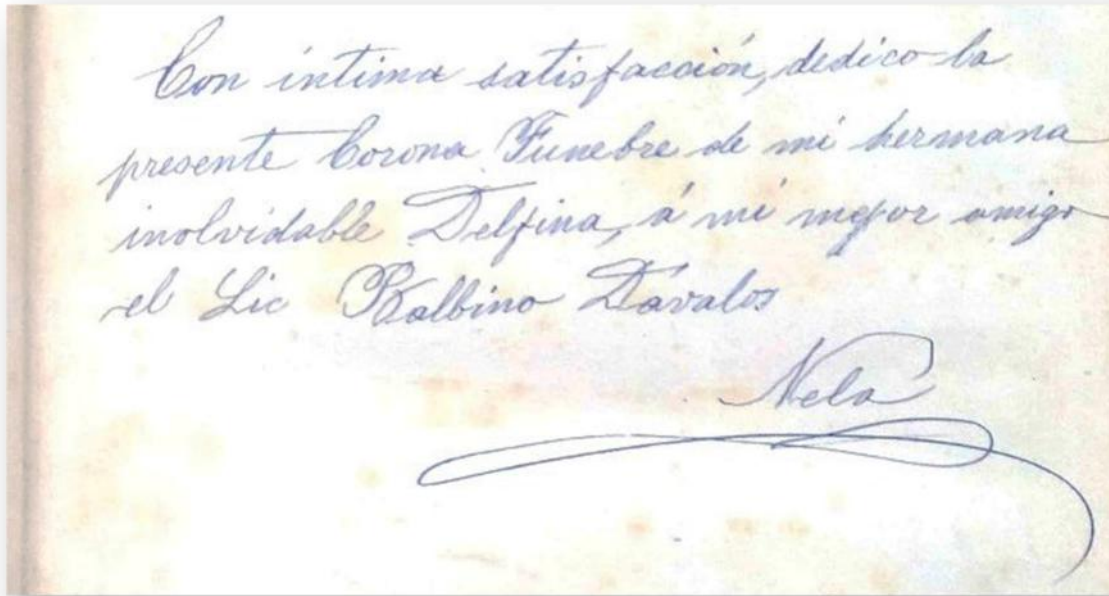 Con intima satisfacción, dedico la
presente Corona Funebre de mi hermana
inolvidable Delfina, á mi mejor amigo
el Lic Balbino Dávalos
Nela